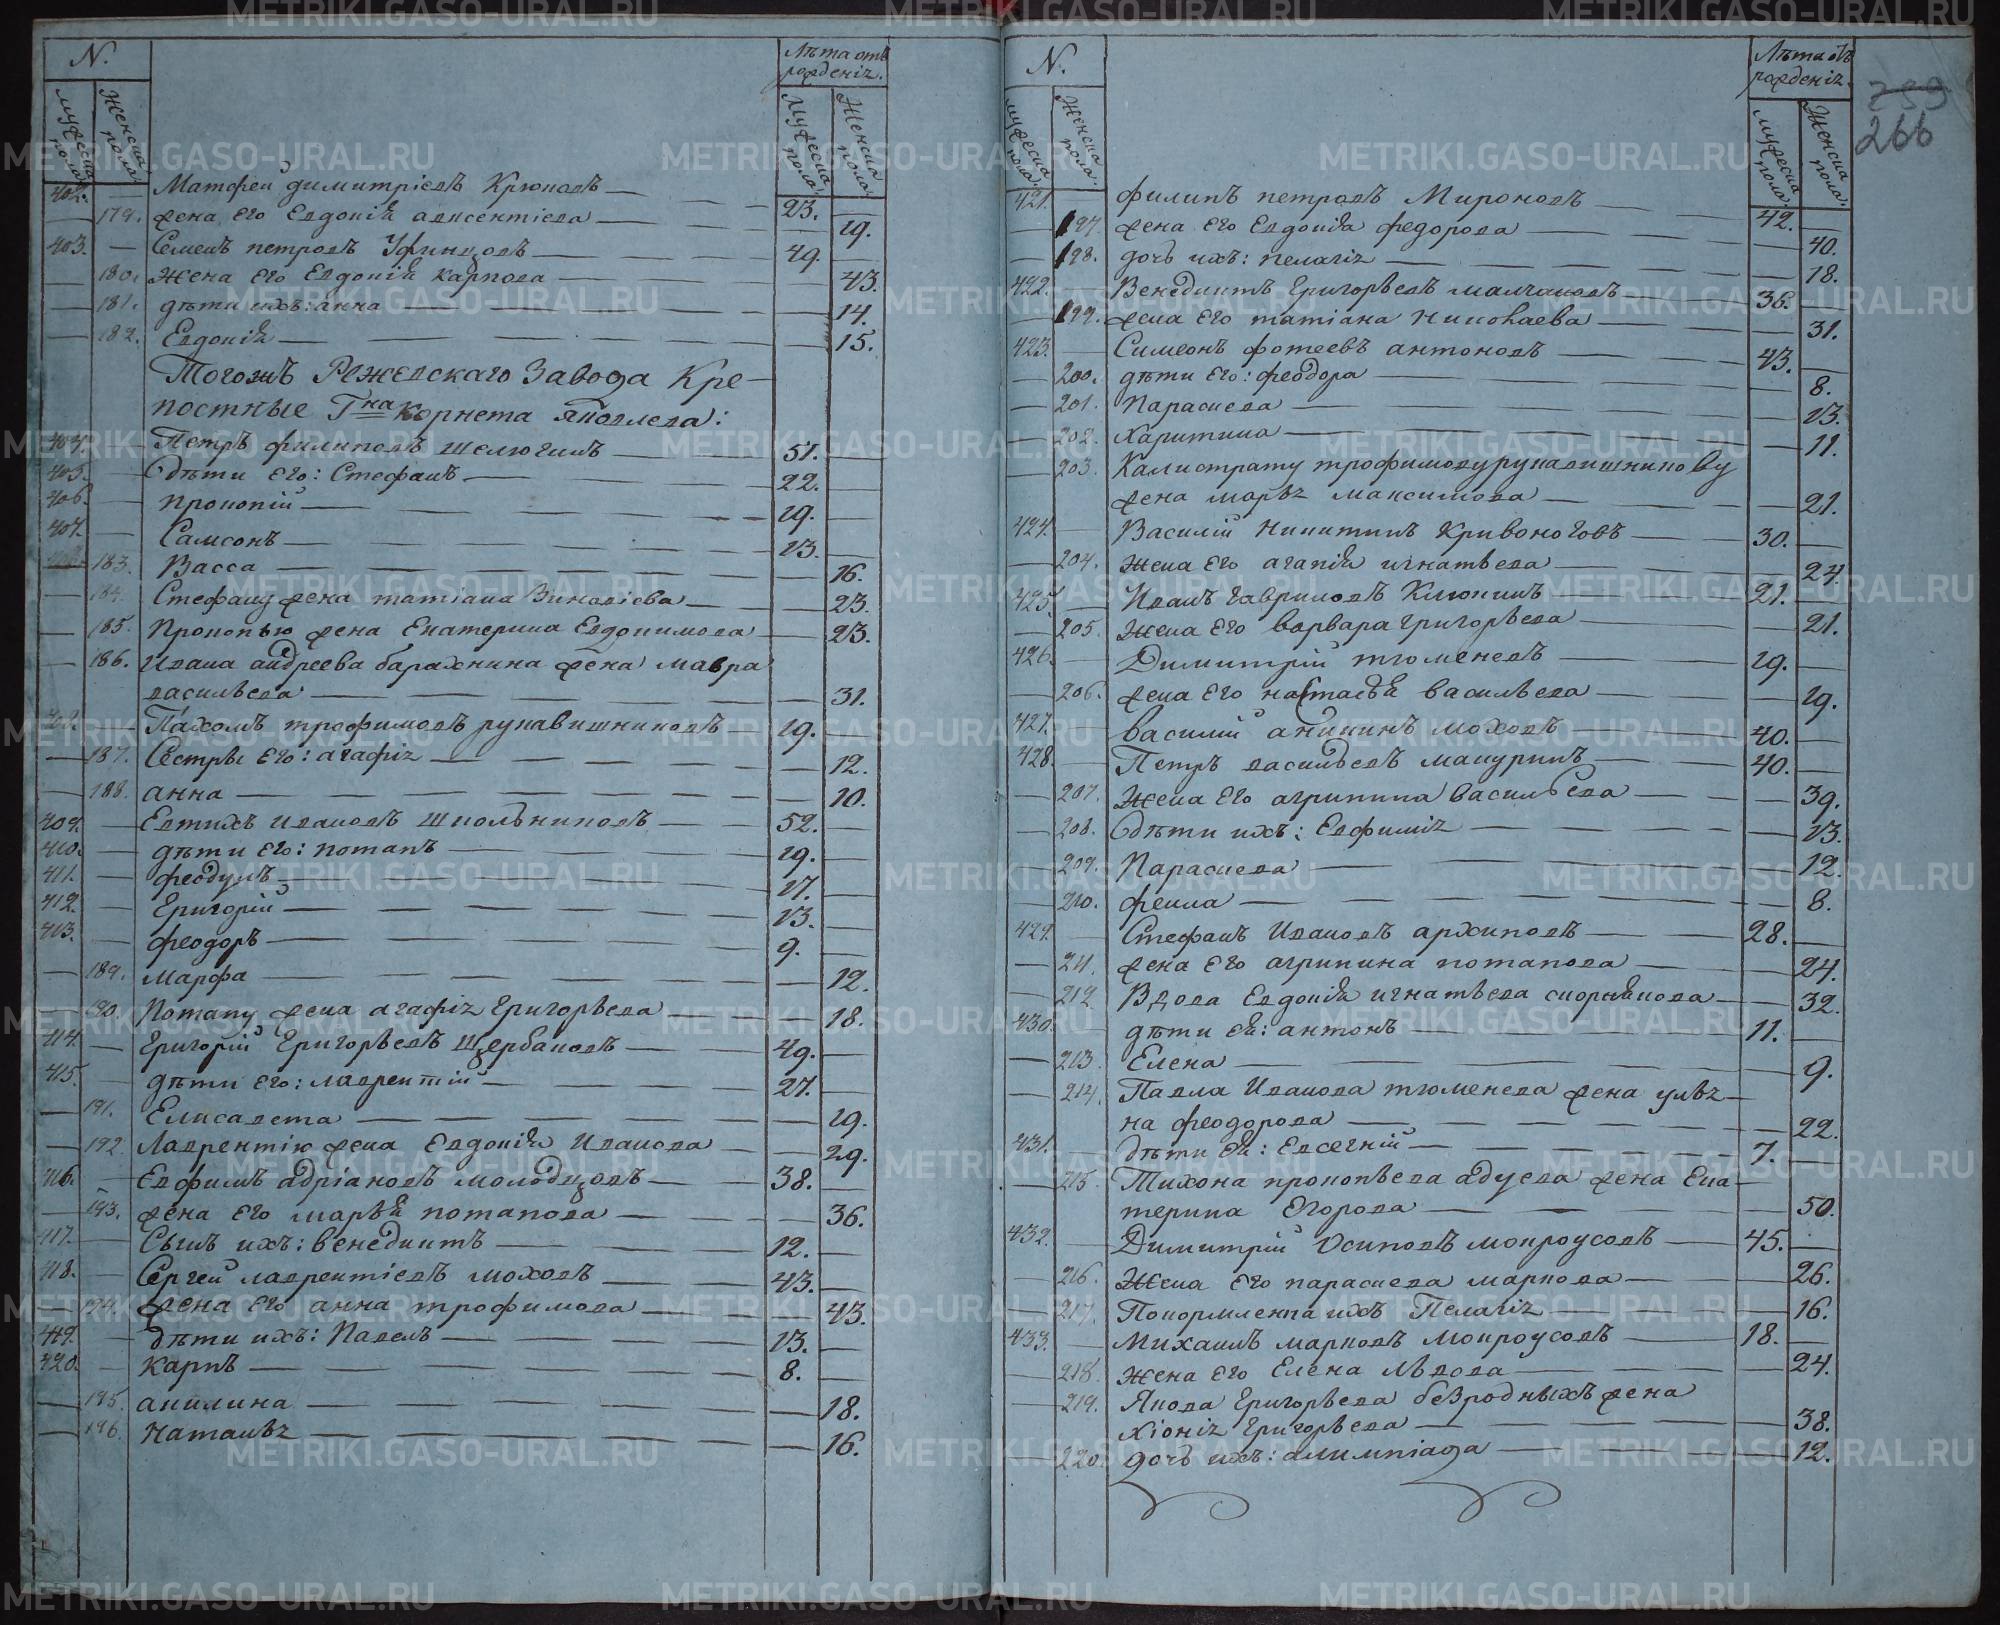 N.
Лѣта отъ рожденія.
Мужеска пола.
Женска пола.
Мужеска пола.
Женска пола.
402. Матфей Димитріевъ Крюковъ 23.
179. жена его Евдокія Авксентіева 19.
403. Семенъ Петровъ Уфинцовъ 49.
180. Жена его Евдокія Карпова 43.
181. дѣти ихъ: Анна 14.
182. Евдокія 15.
Тогожъ Режевскаго Завода Кре-
постные Г-на Корнета Яковлева:
404. Петръ Филиповъ Шелюгинъ 51.
405. Дѣти его: Стефанъ 22.
406. Прокопій 19.
407. Самсонъ 13.
183. Васса 16.
184. Стефану жена Татіана Зиновіева 23.
185. Прокопью жена Екатерина Евдокимова 23.
186. Ивана Андреева Барахнина жена Мавра
Васильева 31.
408. Пахомъ Трофимовъ Рукавишниковъ 19.
187. Сестры его: Агафія 12.
188. Анна 10.
409. Евтихъ Ивановъ Школьниковъ 52.
410. дѣти его: Потапъ 19.
411. Феодулъ 17.
412. Григорій 13.
413. Феодоръ 9.
189. Марфа 12.
190. Потапу жена Агафія Григорьева 18.
414. Григорій Григорьевъ Щербаковъ 49.
415. дѣти его: Лаврентій 27.
191. Елисавета 19.
192. Лаврентію жена Евдокія Иванова 29.
416. Евфимъ Адріановъ Молодцовъ 38.
193. жена его Марья Потапова 36.
417. Сынъ ихъ: Венедиктъ 12.
418. Сергей Лаврентіевъ Моховъ 43.
194. жена его Анна Трофимова 43.
419. дѣти ихъ: Павелъ 13.
420. Карпъ 8.
195. Акилина 18.
196. Наталья 16.
N.
Лѣта отъ рожденія.
259
266
Мужеска пола.
Женска пола.
Мужеска пола.
Женска пола.
421. Филипъ Петровъ Мироновъ 42.
197. жена его Евдокія Федорова 40.
198. дочь ихъ: Пелагія 18.
422. Венедиктъ Григорьевъ Малчановъ 36.
199. жена его Татіана Николаева 31.
423. Симеонъ Фотеевъ Антоновъ 43.
200. дѣти его: Феодора 8.
201. Параскева 13.
202. Харитина 11.
203. Калистрату Трофимову Рукавишникову
жена Марья Максимова 21.
424. Василій Никитинъ Кривоноговъ 30.
204. Жена его Агапія Игнатьева 24.
425. Иванъ Гавриловъ Клюкинъ 21.
205. Жена его Варвара Григорьева 21.
426. Димитрій Тюменевъ 19.
206. жена его Настасья Васильева 19.
427. Василій Аникинъ Моховъ 40.
428. Петръ Васильевъ Мануринъ 40.
207. Жена его Агрипина Васильева 39.
208. Дѣти ихъ: Евфимія 13.
209. Параскева 12.
210. Фекла 8.
429. Стефанъ Ивановъ Архиповъ 28.
211. жена его Агрипина Потапова 24.
212. Вдова Евдокія Игнатьева Скорнякова 32.
430. дѣти ей: Антонъ 11.
213. Елена 9.
214. Павла Иванова Тюменева жена Улья-
на Феодорова 22.
431. дѣти ей: Евсегній 7.
215. Тихона Прокопьева Авдуева жена Ека-
терина Егорова 50.
432. Димитрій Осиповъ Мокроусовъ 45.
216. Жена его Параскева Маркова 26.
217. Покормленка ихъ Пелагія 16.
433. Михаилъ Марковъ Мокроусовъ 18.
218. Жена его Елена Львова 24.
219. Якова Григорьева Безродныхъ жена
Хіонія Григорьева 38.
220. дочь ихъ: Алимпіада 12.
METRIKI.GASO-URAL.RU